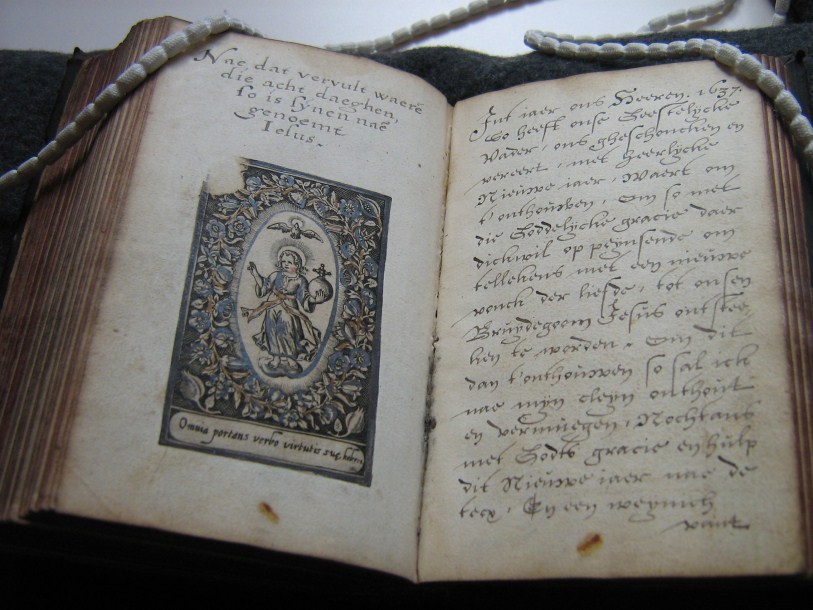 Nae dat vervult waerē
die acht daeghen,
so is synen naē
genoemt
Iesus.
Omnia portans verbo virtutis suę. hebr.
Int iaer ons Heeren. 1637.
So heeft onse Geestelycke
Vader, ons gheschoncken en
vereert, met heerlycke
Nieuwe iaer, Waert om
t'onthouwen, Om so met
die Goddelycke gracie daer
dickwil op peynsende om
tellekens met een nieuwe
vonck der liefde, tot onsen
Bruydegoom Jesus ontstee
ken te worden. Om dit
dan t'onthouwen so sal ick
nae myn cleyn onthout
en vermuegen, Nochtans
met Godts gracie en hulp
dit Nieuwe iaer nae de
tecx, En een weynich
want